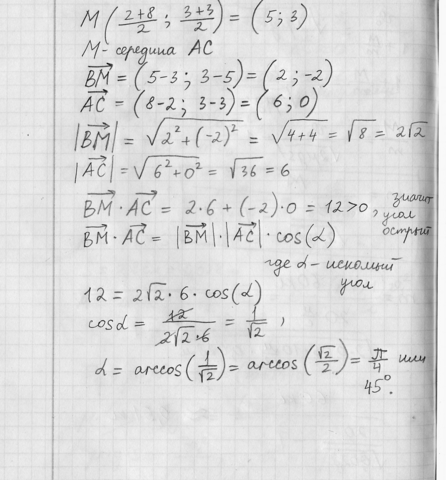 M(\frac{2+8}{2}; \frac{3+3}{2}) = (5; 3)
M - середина AC
\overrightarrow{BM} = (5-3; 3-5) = (2; -2)
\overrightarrow{AC} = (8-2; 3-3) = (6; 0)
|\overrightarrow{BM}| = \sqrt{2^2+(-2)^2} = \sqrt{4+4} = \sqrt{8} = 2\sqrt{2}
|\overrightarrow{AC}| = \sqrt{6^2+0^2} = \sqrt{36} = 6
\overrightarrow{BM} · \overrightarrow{AC} = 2·6 + (-2)·0 = 12>0, значит угол острый
\overrightarrow{BM} · \overrightarrow{AC} = |\overrightarrow{BM}|·|\overrightarrow{AC}|·cos(α)
где α - искомый
угол
12 = 2\sqrt{2}·6·cos(α)
cosα = \frac{12}{2\sqrt{2}·6} = \frac{1}{\sqrt{2}},
α = arccos(\frac{1}{\sqrt{2}}) = arccos(\frac{\sqrt{2}}{2}) = \frac{π}{4} или
45°.